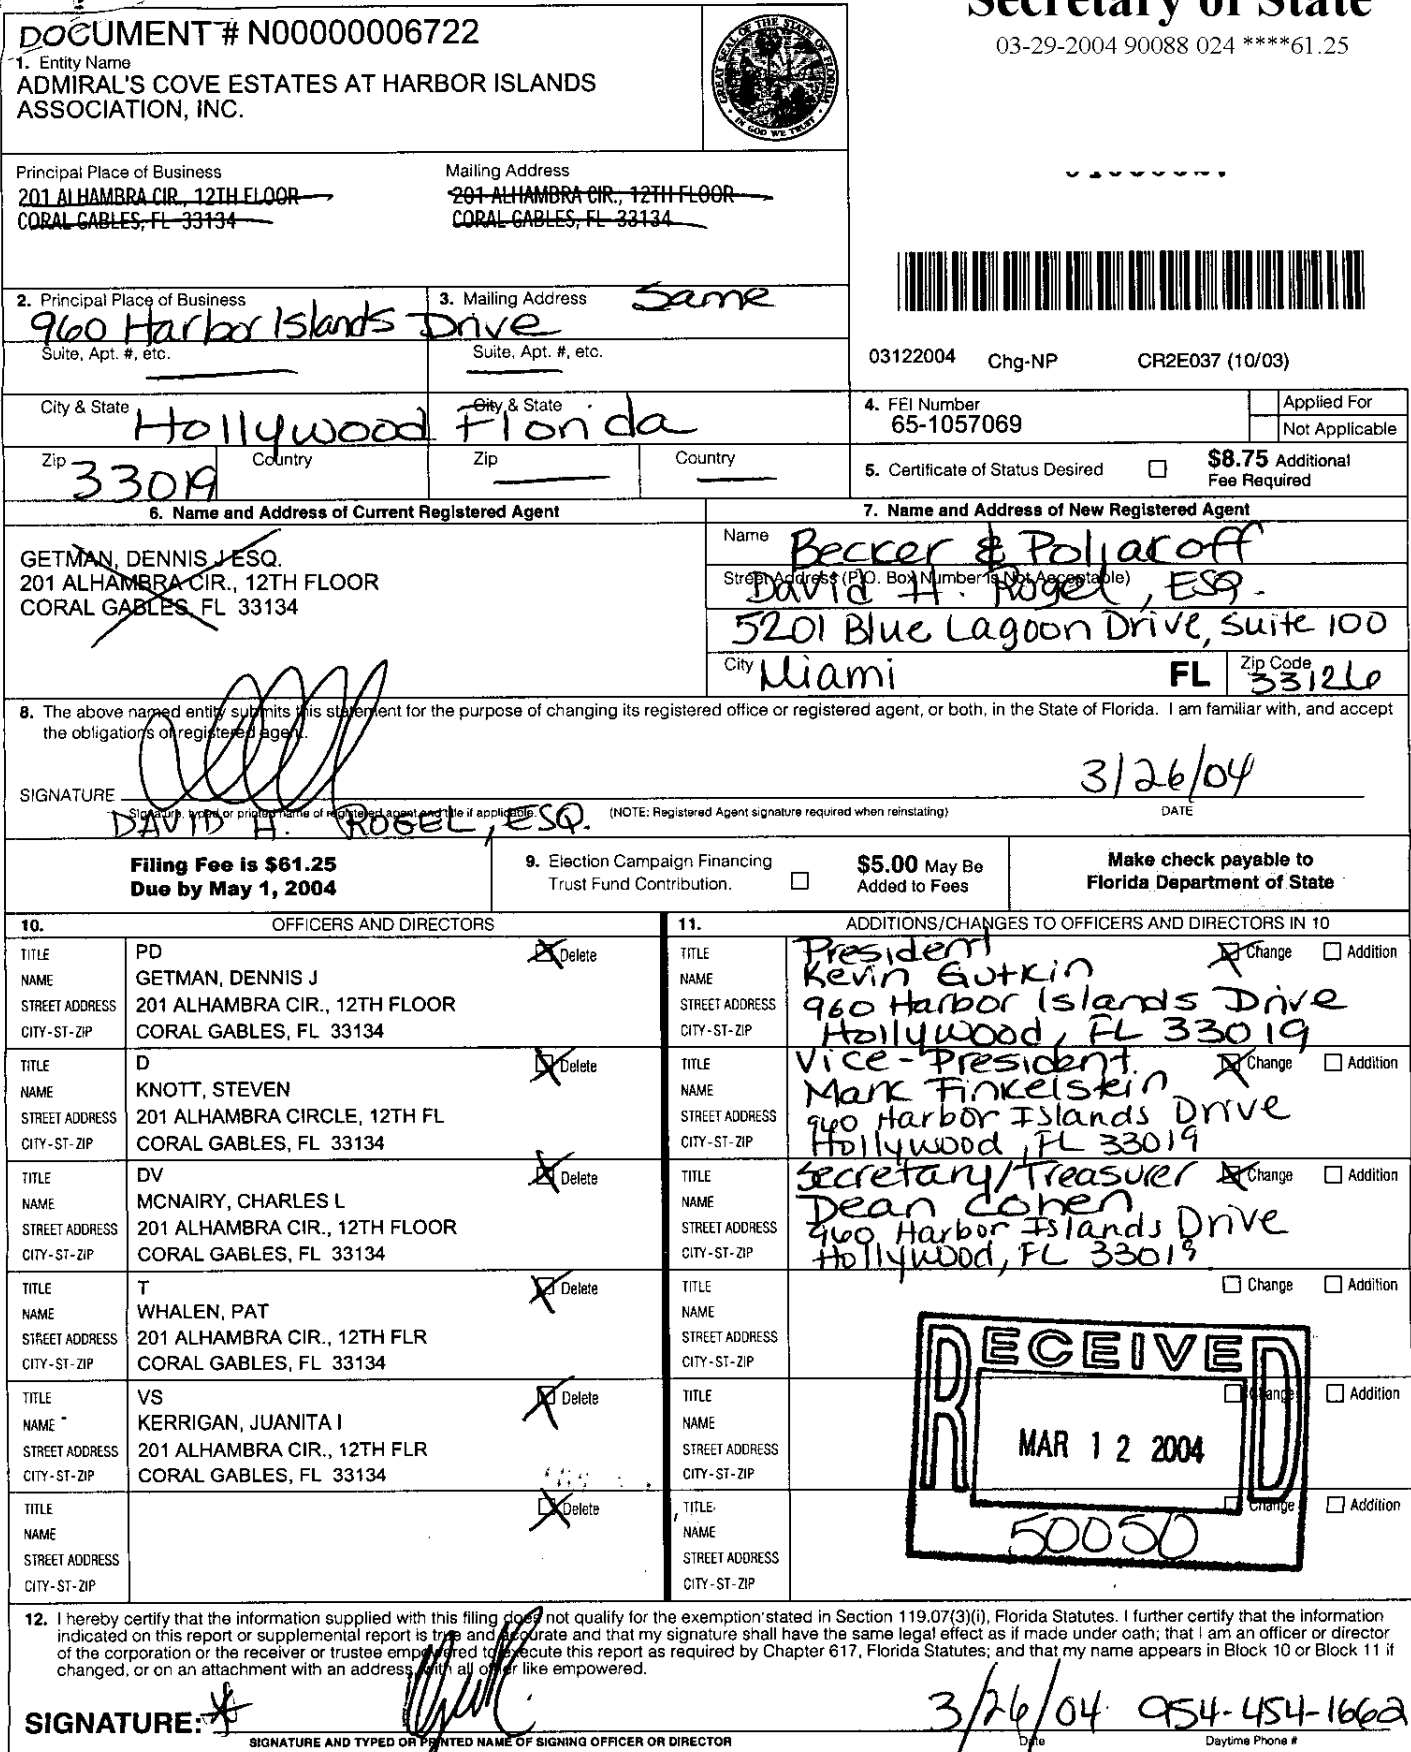 Secretary of State
03-29-2004 90088 024 ****61.25
DOCUMENT # N00000006722
1. Entity Name
ADMIRAL'S COVE ESTATES AT HARBOR ISLANDS
ASSOCIATION, INC.
GREAT SEAL OF THE STATE OF FLORIDA
IN GOD WE TRUST
Principal Place of Business
201 ALHAMBRA CIR., 12TH FLOOR
CORAL GABLES, FL 33134
Mailing Address
201 ALHAMBRA CIR., 12TH FLOOR
CORAL GABLES, FL 33134
2. Principal Place of Business
960 Harbor Islands Drive
3. Mailing Address Same
Suite, Apt. #, etc.
Suite, Apt. #, etc.
03122004 Chg-NP CR2E037 (10/03)
City & State Hollywood
City & State Florida
4. FEI Number
65-1057069
Applied For
Not Applicable
Zip 33019
Country
Zip
Country
5. Certificate of Status Desired
$8.75 Additional
Fee Required
6. Name and Address of Current Registered Agent
GETMAN, DENNIS J ESQ.
201 ALHAMBRA CIR., 12TH FLOOR
CORAL GABLES, FL 33134
7. Name and Address of New Registered Agent
Name Becker & Poliakoff
Street Address (P.O. Box Number is Not Acceptable)
David H. Rogel, ESQ.
5201 Blue Lagoon Drive, Suite 100
City Miami FL Zip Code 33126
8. The above named entity submits this statement for the purpose of changing its registered office or registered agent, or both, in the State of Florida. I am familiar with, and accept
the obligations of registered agent.
SIGNATURE 3/26/04
Signature, typed or printed name of registered agent and title if applicable. (NOTE: Registered Agent signature required when reinstating) DATE
DAVID H. ROGEL, ESQ.
Filing Fee is $61.25
Due by May 1, 2004
9. Election Campaign Financing
Trust Fund Contribution.
$5.00 May Be
Added to Fees
Make check payable to
Florida Department of State
10. OFFICERS AND DIRECTORS
TITLE PD Delete
NAME GETMAN, DENNIS J
STREET ADDRESS 201 ALHAMBRA CIR., 12TH FLOOR
CITY-ST-ZIP CORAL GABLES, FL 33134
TITLE D Delete
NAME KNOTT, STEVEN
STREET ADDRESS 201 ALHAMBRA CIRCLE, 12TH FL
CITY-ST-ZIP CORAL GABLES, FL 33134
TITLE DV Delete
NAME MCNAIRY, CHARLES L
STREET ADDRESS 201 ALHAMBRA CIR., 12TH FLOOR
CITY-ST-ZIP CORAL GABLES, FL 33134
TITLE T Delete
NAME WHALEN, PAT
STREET ADDRESS 201 ALHAMBRA CIR., 12TH FLR
CITY-ST-ZIP CORAL GABLES, FL 33134
TITLE VS Delete
NAME KERRIGAN, JUANITA I
STREET ADDRESS 201 ALHAMBRA CIR., 12TH FLR
CITY-ST-ZIP CORAL GABLES, FL 33134
TITLE Delete
NAME
STREET ADDRESS
CITY-ST-ZIP
11. ADDITIONS/CHANGES TO OFFICERS AND DIRECTORS IN 10
TITLE President Change Addition
NAME Kevin Gutkin
STREET ADDRESS 960 Harbor Islands Drive
CITY-ST-ZIP Hollywood, FL 33019
TITLE Vice-President Change Addition
NAME Mark Finkelstein
STREET ADDRESS 960 Harbor Islands Drive
CITY-ST-ZIP Hollywood, FL 33019
TITLE Secretary/Treasurer Change Addition
NAME Dean Cohen
STREET ADDRESS 960 Harbor Islands Drive
CITY-ST-ZIP Hollywood, FL 33019
TITLE Change Addition
NAME
STREET ADDRESS
CITY-ST-ZIP
TITLE Change Addition
NAME
STREET ADDRESS
CITY-ST-ZIP
TITLE Change Addition
NAME
STREET ADDRESS
CITY-ST-ZIP
RECEIVED
MAR 12 2004
50050
12. I hereby certify that the information supplied with this filing does not qualify for the exemption stated in Section 119.07(3)(i), Florida Statutes. I further certify that the information
indicated on this report or supplemental report is true and accurate and that my signature shall have the same legal effect as if made under oath; that I am an officer or director
of the corporation or the receiver or trustee empowered to execute this report as required by Chapter 617, Florida Statutes; and that my name appears in Block 10 or Block 11 if
changed, or on an attachment with an address, with all other like empowered.
SIGNATURE: 3/26/04 954-454-1662
SIGNATURE AND TYPED OR PRINTED NAME OF SIGNING OFFICER OR DIRECTOR Date Daytime Phone #